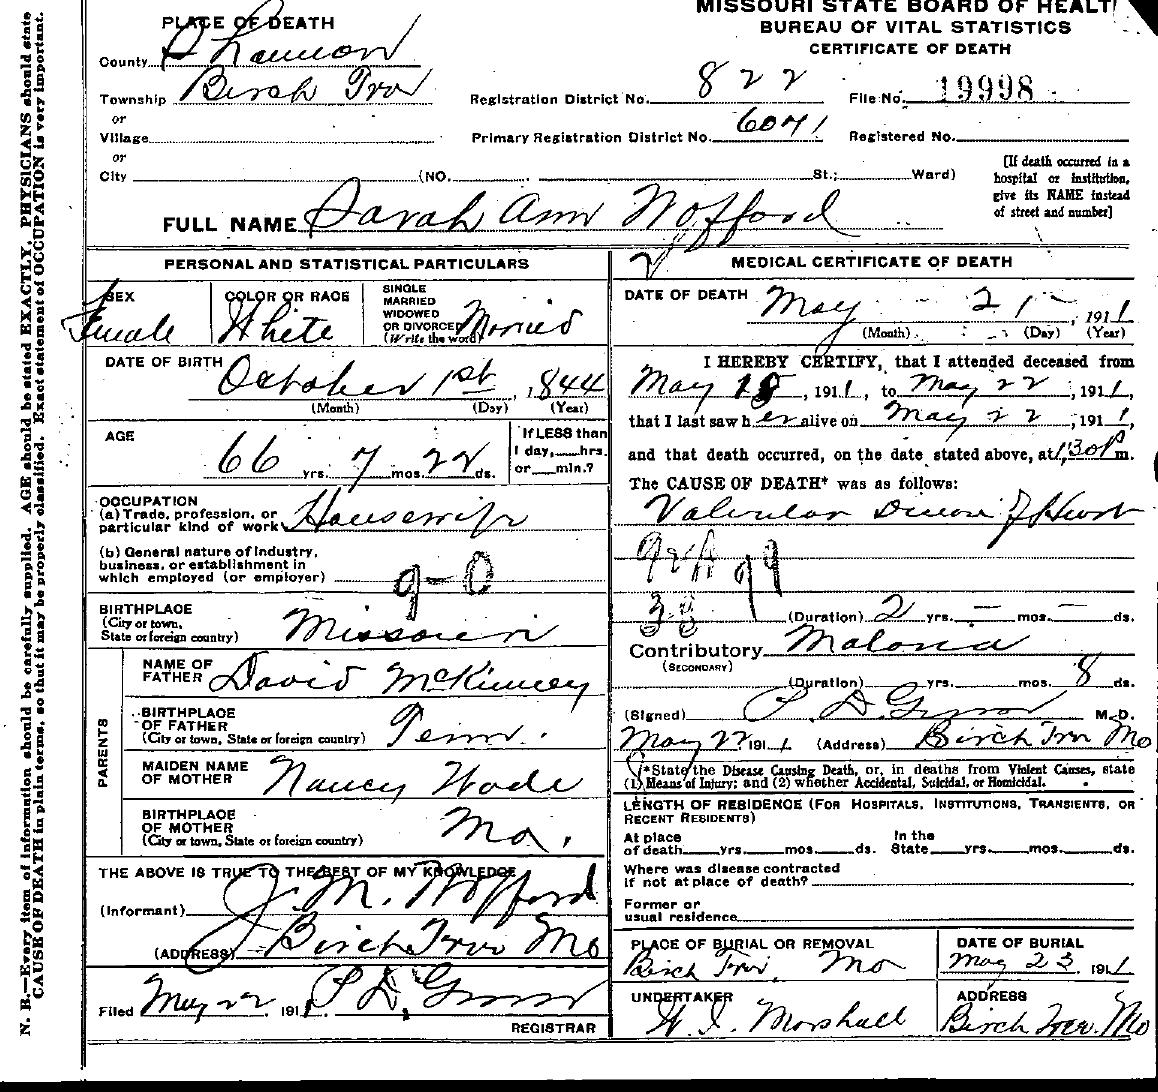 MISSOURI STATE BOARD OF HEALT
BUREAU OF VITAL STATISTICS
CERTIFICATE OF DEATH
PLACE OF DEATH
County Shannon
Township Birch Tree
or
Village
or
City (NO. St.; Ward)
Registration District No. 822
File No. 19998
Primary Registration District No. 6071
Registered No.
[If death occurred in a
hospital or institution,
give its NAME instead
of street and number]
FULL NAME Sarah Ann Wofford
PERSONAL AND STATISTICAL PARTICULARS
SEX
Female
COLOR OR RACE
White
SINGLE
MARRIED
WIDOWED
OR DIVORCED
(Write the word) Married
DATE OF BIRTH
October 1st, 1844
(Month) (Day) (Year)
AGE
66 yrs. 7 mos. 22 ds.
If LESS than
1 day, hrs.
or min.?
OCCUPATION
(a) Trade, profession, or
particular kind of work Housewife
(b) General nature of industry,
business, or establishment in
which employed (or employer)
9-0
BIRTHPLACE
(City or town,
State or foreign country) Missouri
PARENTS
NAME OF
FATHER David McKinney
BIRTHPLACE
OF FATHER
(City or town, State or foreign country) Tenn.
MAIDEN NAME
OF MOTHER Nancy Wade
BIRTHPLACE
OF MOTHER
(City or town, State or foreign country) Mo.
THE ABOVE IS TRUE TO THE BEST OF MY KNOWLEDGE
(Informant) J. M. Wofford
(ADDRESS) Birch Tree Mo
Filed May 22 1911 P. D. REGISTRAR
MEDICAL CERTIFICATE OF DEATH
DATE OF DEATH May 21, 1911
(Month) (Day) (Year)
I HEREBY CERTIFY, that I attended deceased from
May 18, 1911, to May 22, 1911,
that I last saw her alive on May 22, 1911,
and that death occurred, on the date stated above, at 1:30 P m.
The CAUSE OF DEATH* was as follows:
Valvular Disease of Heart
(Duration) 2 yrs. - mos. - ds.
Contributory Malaria
(SECONDARY)
(Duration) yrs. mos. 8 ds.
(Signed) P. D. M. D.
May 22 1911 (Address) Birch Tree Mo
*State the Disease Causing Death, or, in deaths from Violent Causes, state
(1) Means of Injury; and (2) whether Accidental, Suicidal, or Homicidal.
LENGTH OF RESIDENCE (FOR HOSPITALS, INSTITUTIONS, TRANSIENTS, OR
RECENT RESIDENTS)
At place
of death yrs. mos. ds.
In the
State yrs. mos. ds.
Where was disease contracted
if not at place of death?
Former or
usual residence
PLACE OF BURIAL OR REMOVAL
Birch Tree, Mo
DATE OF BURIAL
May 23, 1911
UNDERTAKER
W. I. Marshall
ADDRESS
Birch Tree. Mo
N. B.—Every item of information should be carefully supplied. AGE should be stated EXACTLY. PHYSICIANS should state
CAUSE OF DEATH in plain terms, so that it may be properly classified. Exact statement of OCCUPATION is very important.